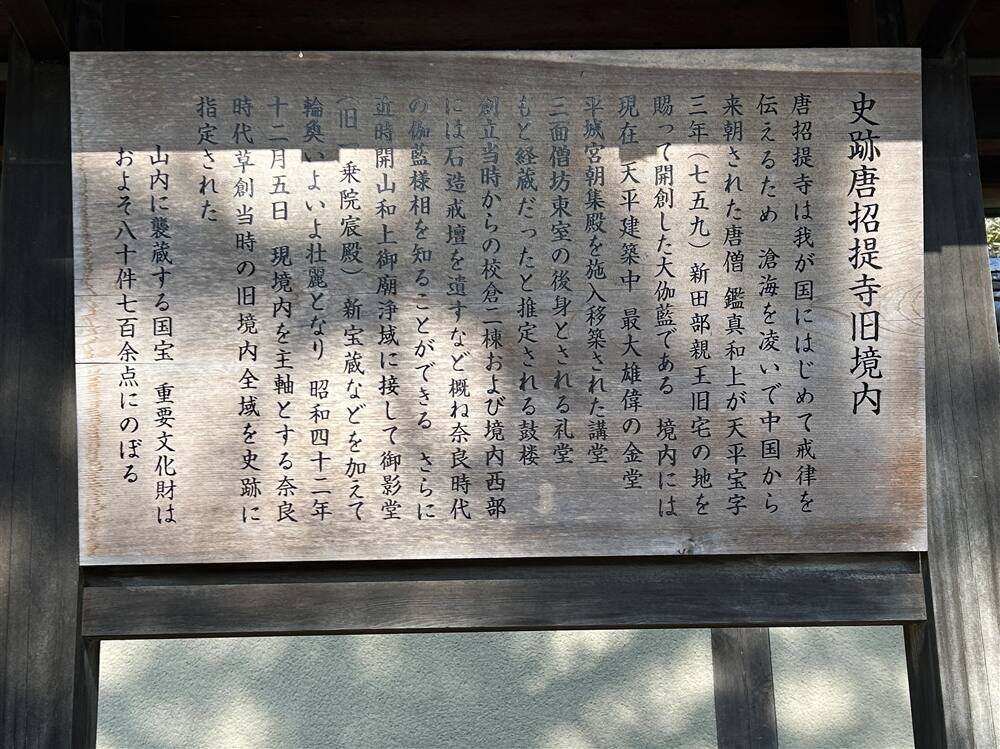 史跡唐招提寺旧境内
唐招提寺は我が国にはじめて戒律を
伝えるため　滄海を凌いで中国から
来朝された唐僧 鑑真和上が天平宝字
三年（七五九）新田部親王旧宅の地を
賜って開創した大伽藍である　境内には
現在　天平建築中　最大雄偉の金堂
平城宮朝集殿を施入移築された講堂
三面僧坊東室の後身とされる礼堂
もと経蔵だったと推定される鼓楼
創立当時からの校倉二棟および境内西部
には石造戒壇を遺すなど概ね奈良時代
の伽藍様相を知ることができる　さらに
近時開山和上御廟浄域に接して御影堂
（旧一乗院宸殿）　新宝蔵などを加えて
輪奐いよいよ壮麗となり　昭和四十二年
十二月五日　現境内を主軸とする奈良
時代草創当時の旧境内全域を史跡に
指定された
山内に襲蔵する国宝　重要文化財は
およそ八十件七百余点にのぼる